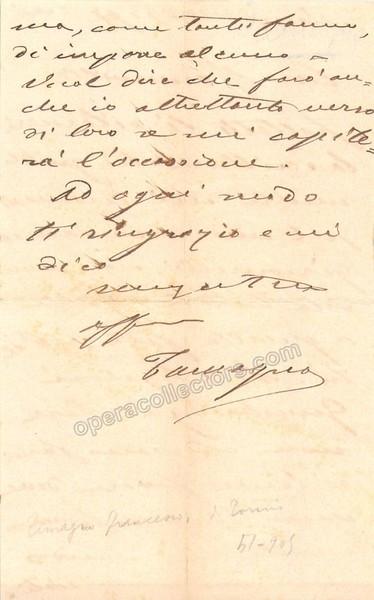 ma, come tanti fanno,
di imporre alcuno –
Vuol dire che farò an-
che io altrettanto verso
di loro se mi capite-
rà l'occasione.
Ad ogni modo
ti ringrazio e mi
dico
sempre tuo
aff
Tamagno
operacollectors.com
Tamagno Francesco, di Torino
51-905